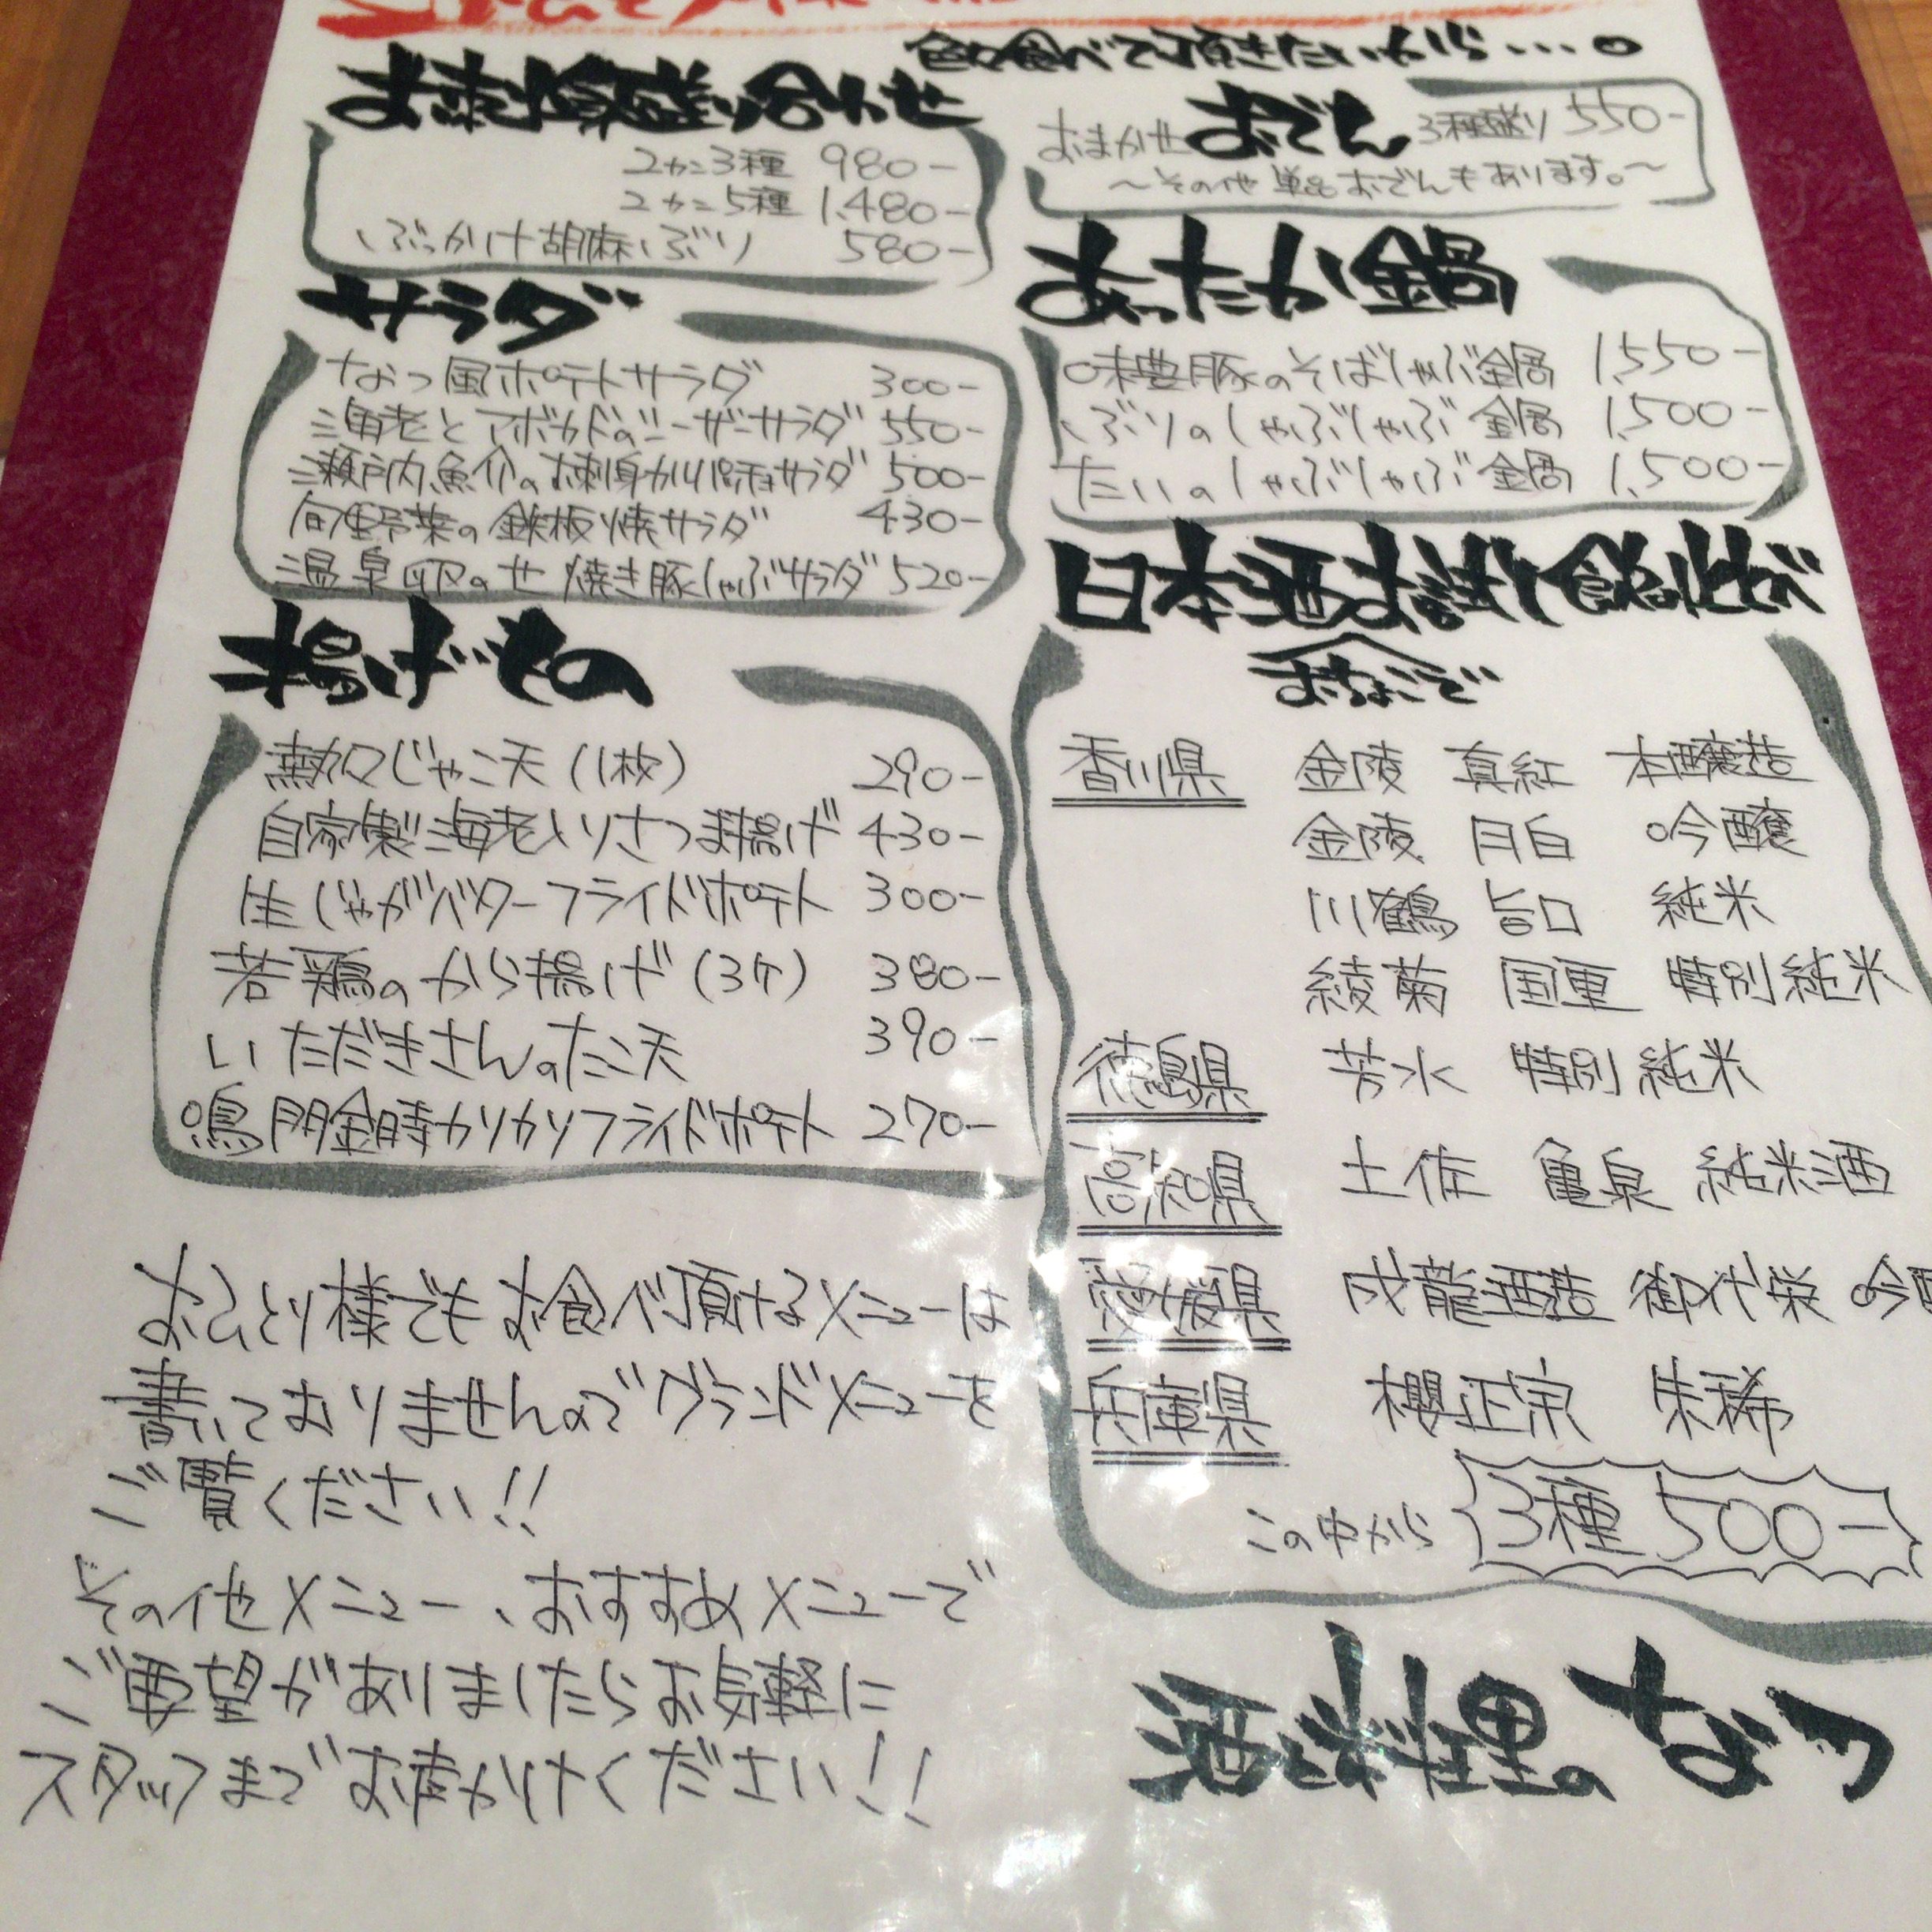 色々食べて頂きたいから…。
お刺身盛り合わせ
2カン3種 980-
2カン5種 1,480-
ぶっかけ胡麻ぶり 580-
サラダ
なつ風ポテトサラダ 300-
海老とアボカドのシーザーサラダ 550-
瀬戸内魚介のお刺身カルパッチョサラダ 500-
旬野菜の鉄板焼サラダ 430-
温泉卵のせ 焼き豚しゃぶサラダ 520-
揚げもの
熱々じゃこ天(1枚) 290-
自家製海老入りさつま揚げ 430-
生じゃがバターフライドポテト 300-
若鶏のから揚げ(3ケ) 380-
いただきさんのたこ天 390-
鳴門金時カリカリフライドポテト 270-
おひとり様でもお食べ頂けるメニューは
書いておりませんのでグランドメニューを
ご覧ください!!
その他メニュー、おすすめメニューで
ご要望がありましたらお気軽に
スタッフまでお声かけください!!
おまかせ おでん 3種盛り 550-
〜その他 単品おでんもあります。〜
あったか鍋
味豊豚のそばしゃぶ鍋 1,550-
ぶりのしゃぶしゃぶ鍋 1,500-
たいのしゃぶしゃぶ鍋 1,500-
日本酒お試し飲み比べ
おちょこで
香川県 金陵 真紅 本醸造
金陵 月白 吟醸
川鶴 旨口 純米
綾菊 国重 特別純米
徳島県 芳水 特別純米
高知県 土佐 亀泉 純米酒
愛媛県 成龍酒造 御代栄 吟
兵庫県 櫻正宗 朱稀
この中から 3種 500-
酒と料理の なつ